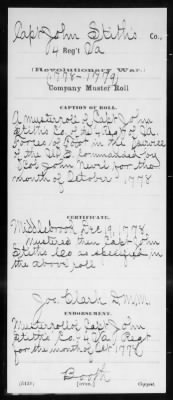 Capt John Stith's Co.,
4 Reg't Va
(Revolutionary War.)
1778-1779
Company Muster Roll
CAPTION OF ROLL.
A muster roll of Capt John
Stiths Co of the 4 Regt of Va
Forces of Foot in the Service
of the U.S. commanded by
Col John Neal for the
month of October
1778
CERTIFICATE.
Middlebrook Dec 19, 1778.
Mustered then Capt John
Stiths Co as specified in
the above roll
Jos. Clark D.M.M.
ENDORSEMENT.
Muster roll of Capt John
Stith's Co 4 Va Regt
for the month of Oct 1778
Booth
Copyist.